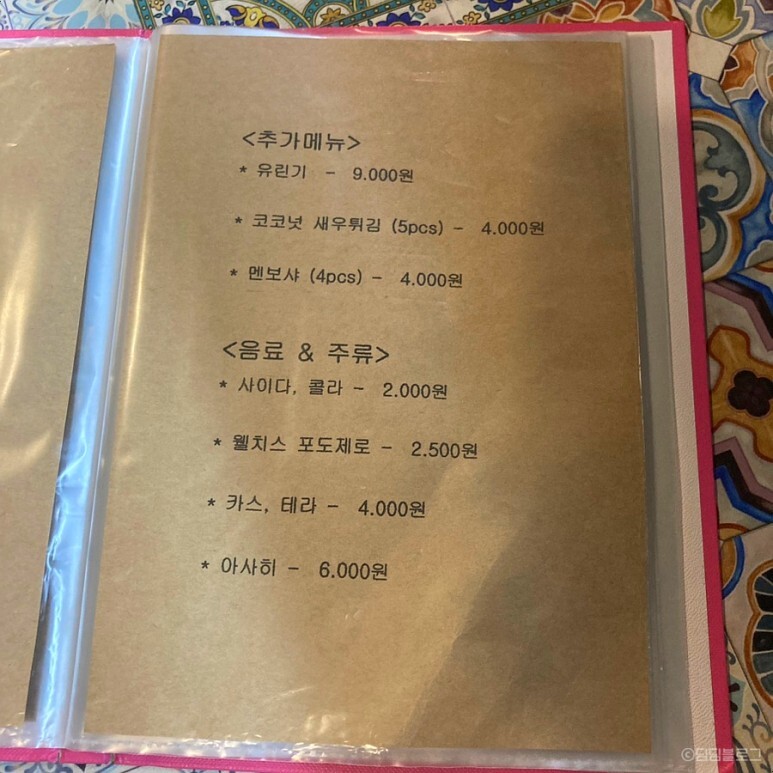 <추가메뉴>
* 유린기 - 9.000원
* 코코넛 새우튀김 (5pcs) - 4.000원
* 멘보샤 (4pcs) - 4.000원
<음료 & 주류>
* 사이다, 콜라 - 2.000원
* 웰치스 포도제로 - 2.500원
* 카스, 테라 - 4.000원
* 아사히 - 6.000원